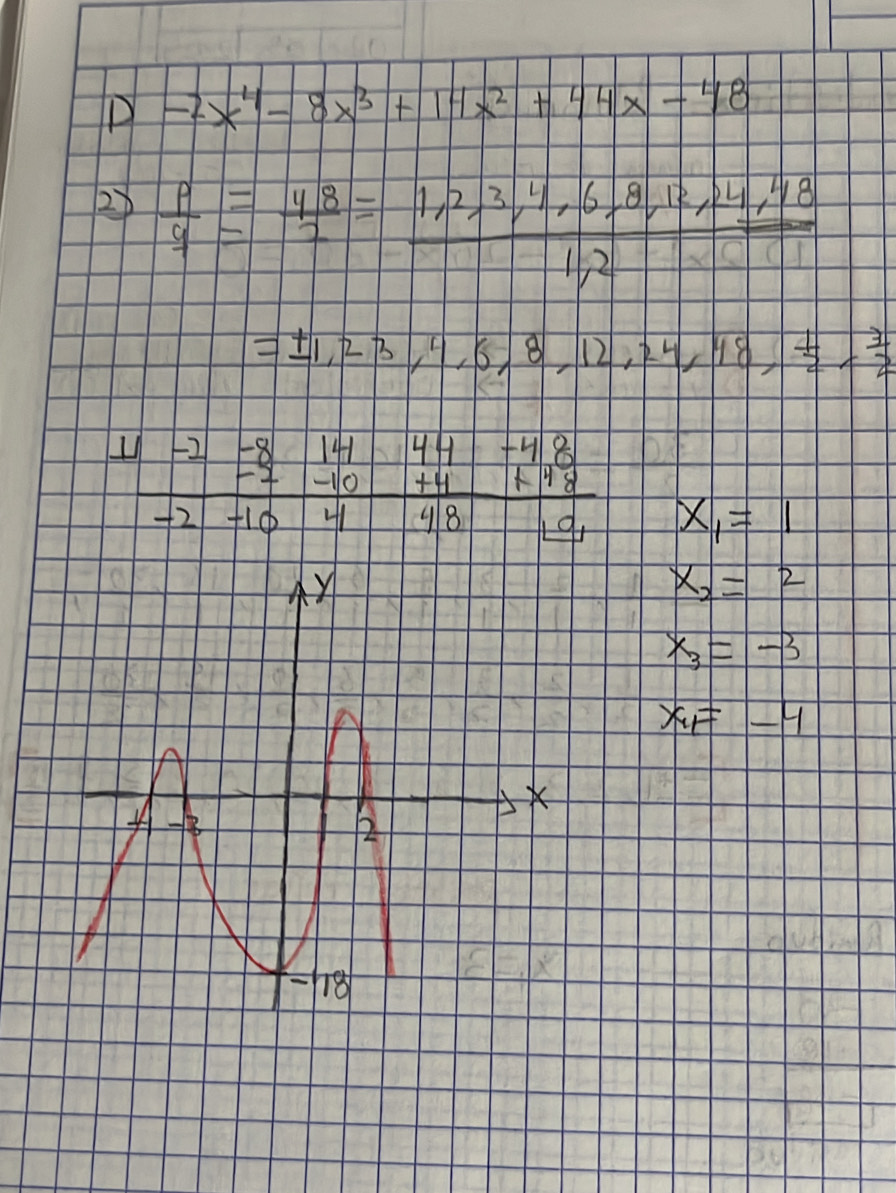 1) -2x⁴ - 8x³ + 14x² + 44x - 48
2) p/q = 48/2 = 1,2,3,4,6,8,12,24,48 / 1,2
= ±1,2 3,4,6,8,12,24,48, 1/2, 3/2
1| -2 -8 14 44 -48
-2 -10 +4 +48
-2 -10 4 48 0
x₁ = 1
x₂ = 2
x₃ = -3
x₄ = -4
y
x
-4 -3 2
-48